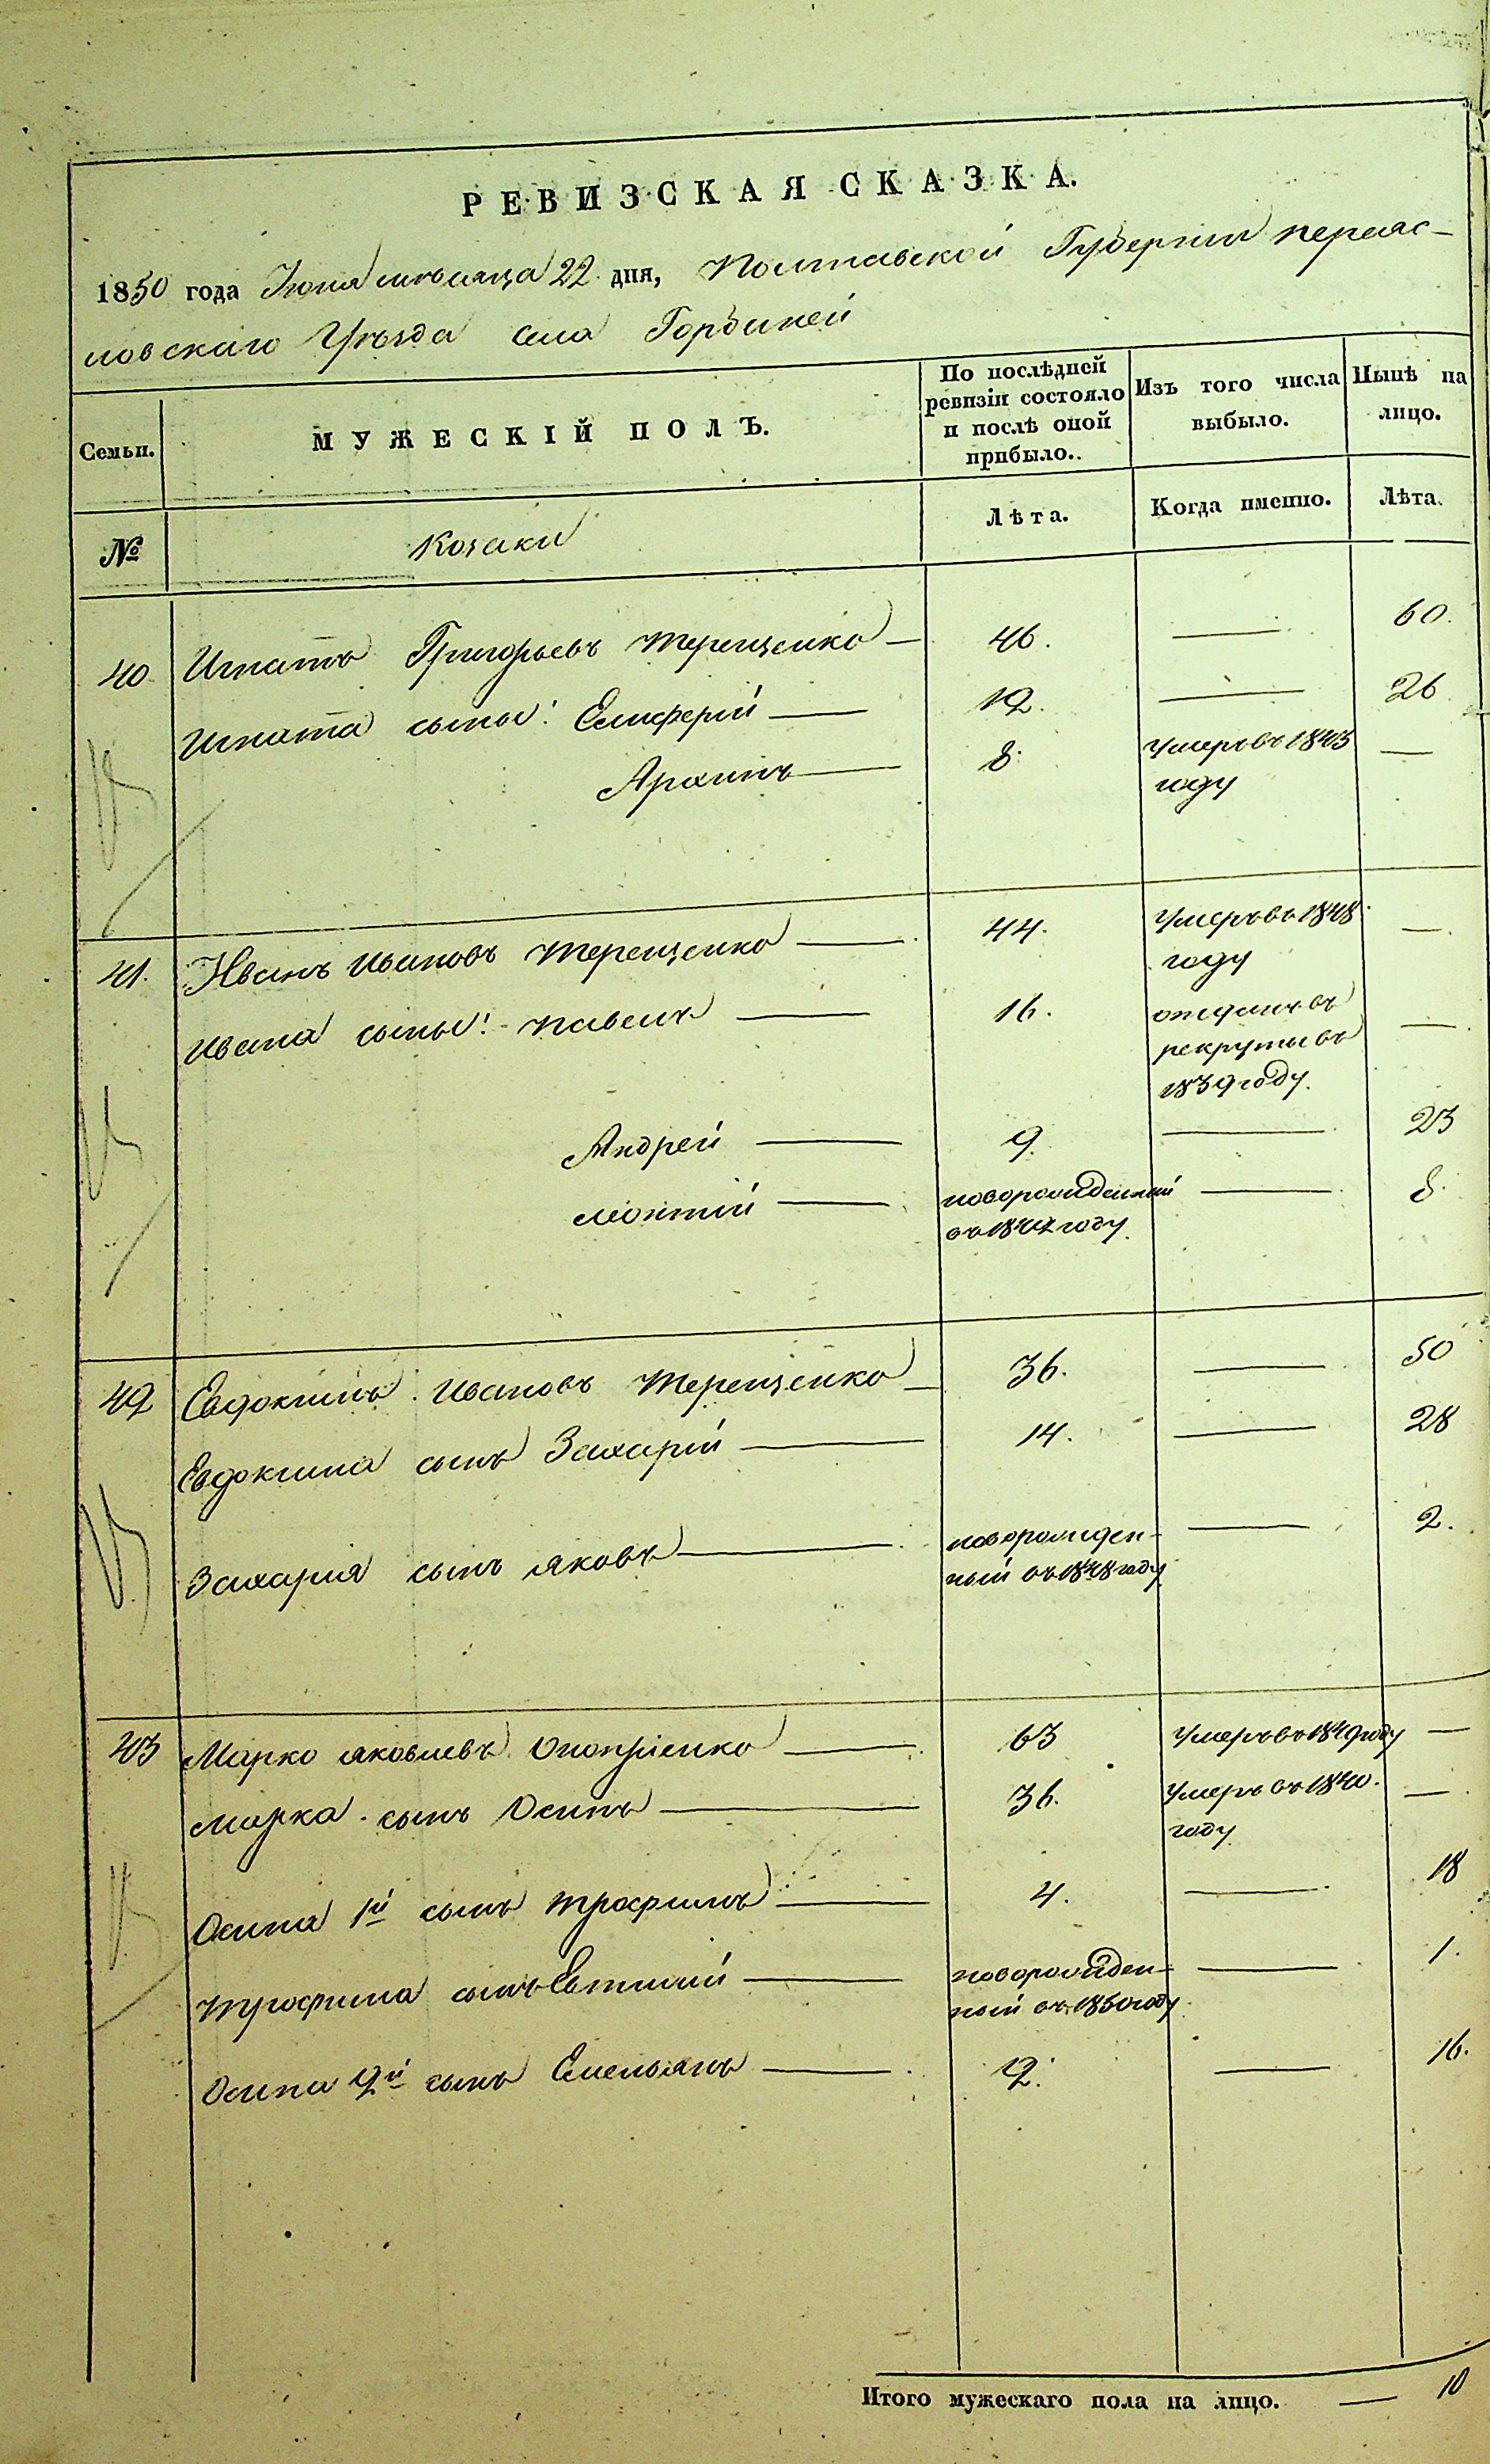 РЕВИЗСКАЯ СКАЗКА.
1850 года Июня мѣсяца 22 дня, Полтавской Губерніи переяс-
ловскаго Уѣзда Села Горбаней
Семьи.
МУЖЕСКІЙ ПОЛЪ.
По послѣдней ревизіи состояло и послѣ оной прибыло.
Изъ того числа выбыло.
Нынѣ на лицо.
№
Козаки
Лѣта.
Когда именно.
Лѣта.
40 Игнатъ Григорьевъ Терещенко — 46. — 60.
Игната сыны: Елиферій — 12. — 26
Архипъ — 8. Умеръ въ 1843 —
году
41. Иванъ Ивановъ Терещенко — 44. Умеръ въ 1848 —
году
Ивана сыны: Павелъ — 16. отданъ въ
рекруты въ —
1839 году.
Андрей — 9. — 23
Леонтій — новорожденный — 8.
въ 1842 году.
42 Евдокимъ Ивановъ Терещенко — 36. — 50
Евдокима сынъ Захарій — 14. — 28
Захарія сынъ Яковъ — новорожден- — 2.
ный въ 1848 году
43 Марко Яковлевъ Онопріенко — 63 Умеръ въ 1849 году —
Марка сынъ Осипъ — 36. Умеръ въ 1840. —
году
Осипа 1й сынъ Трофимъ — 4. — 18
Трофима сынъ Евтихій — новорожден- — 1.
ный въ 1850 году
Осипа 2й сынъ Емельянъ — 2. — 16.
Итого мужескаго пола на лицо. — 10